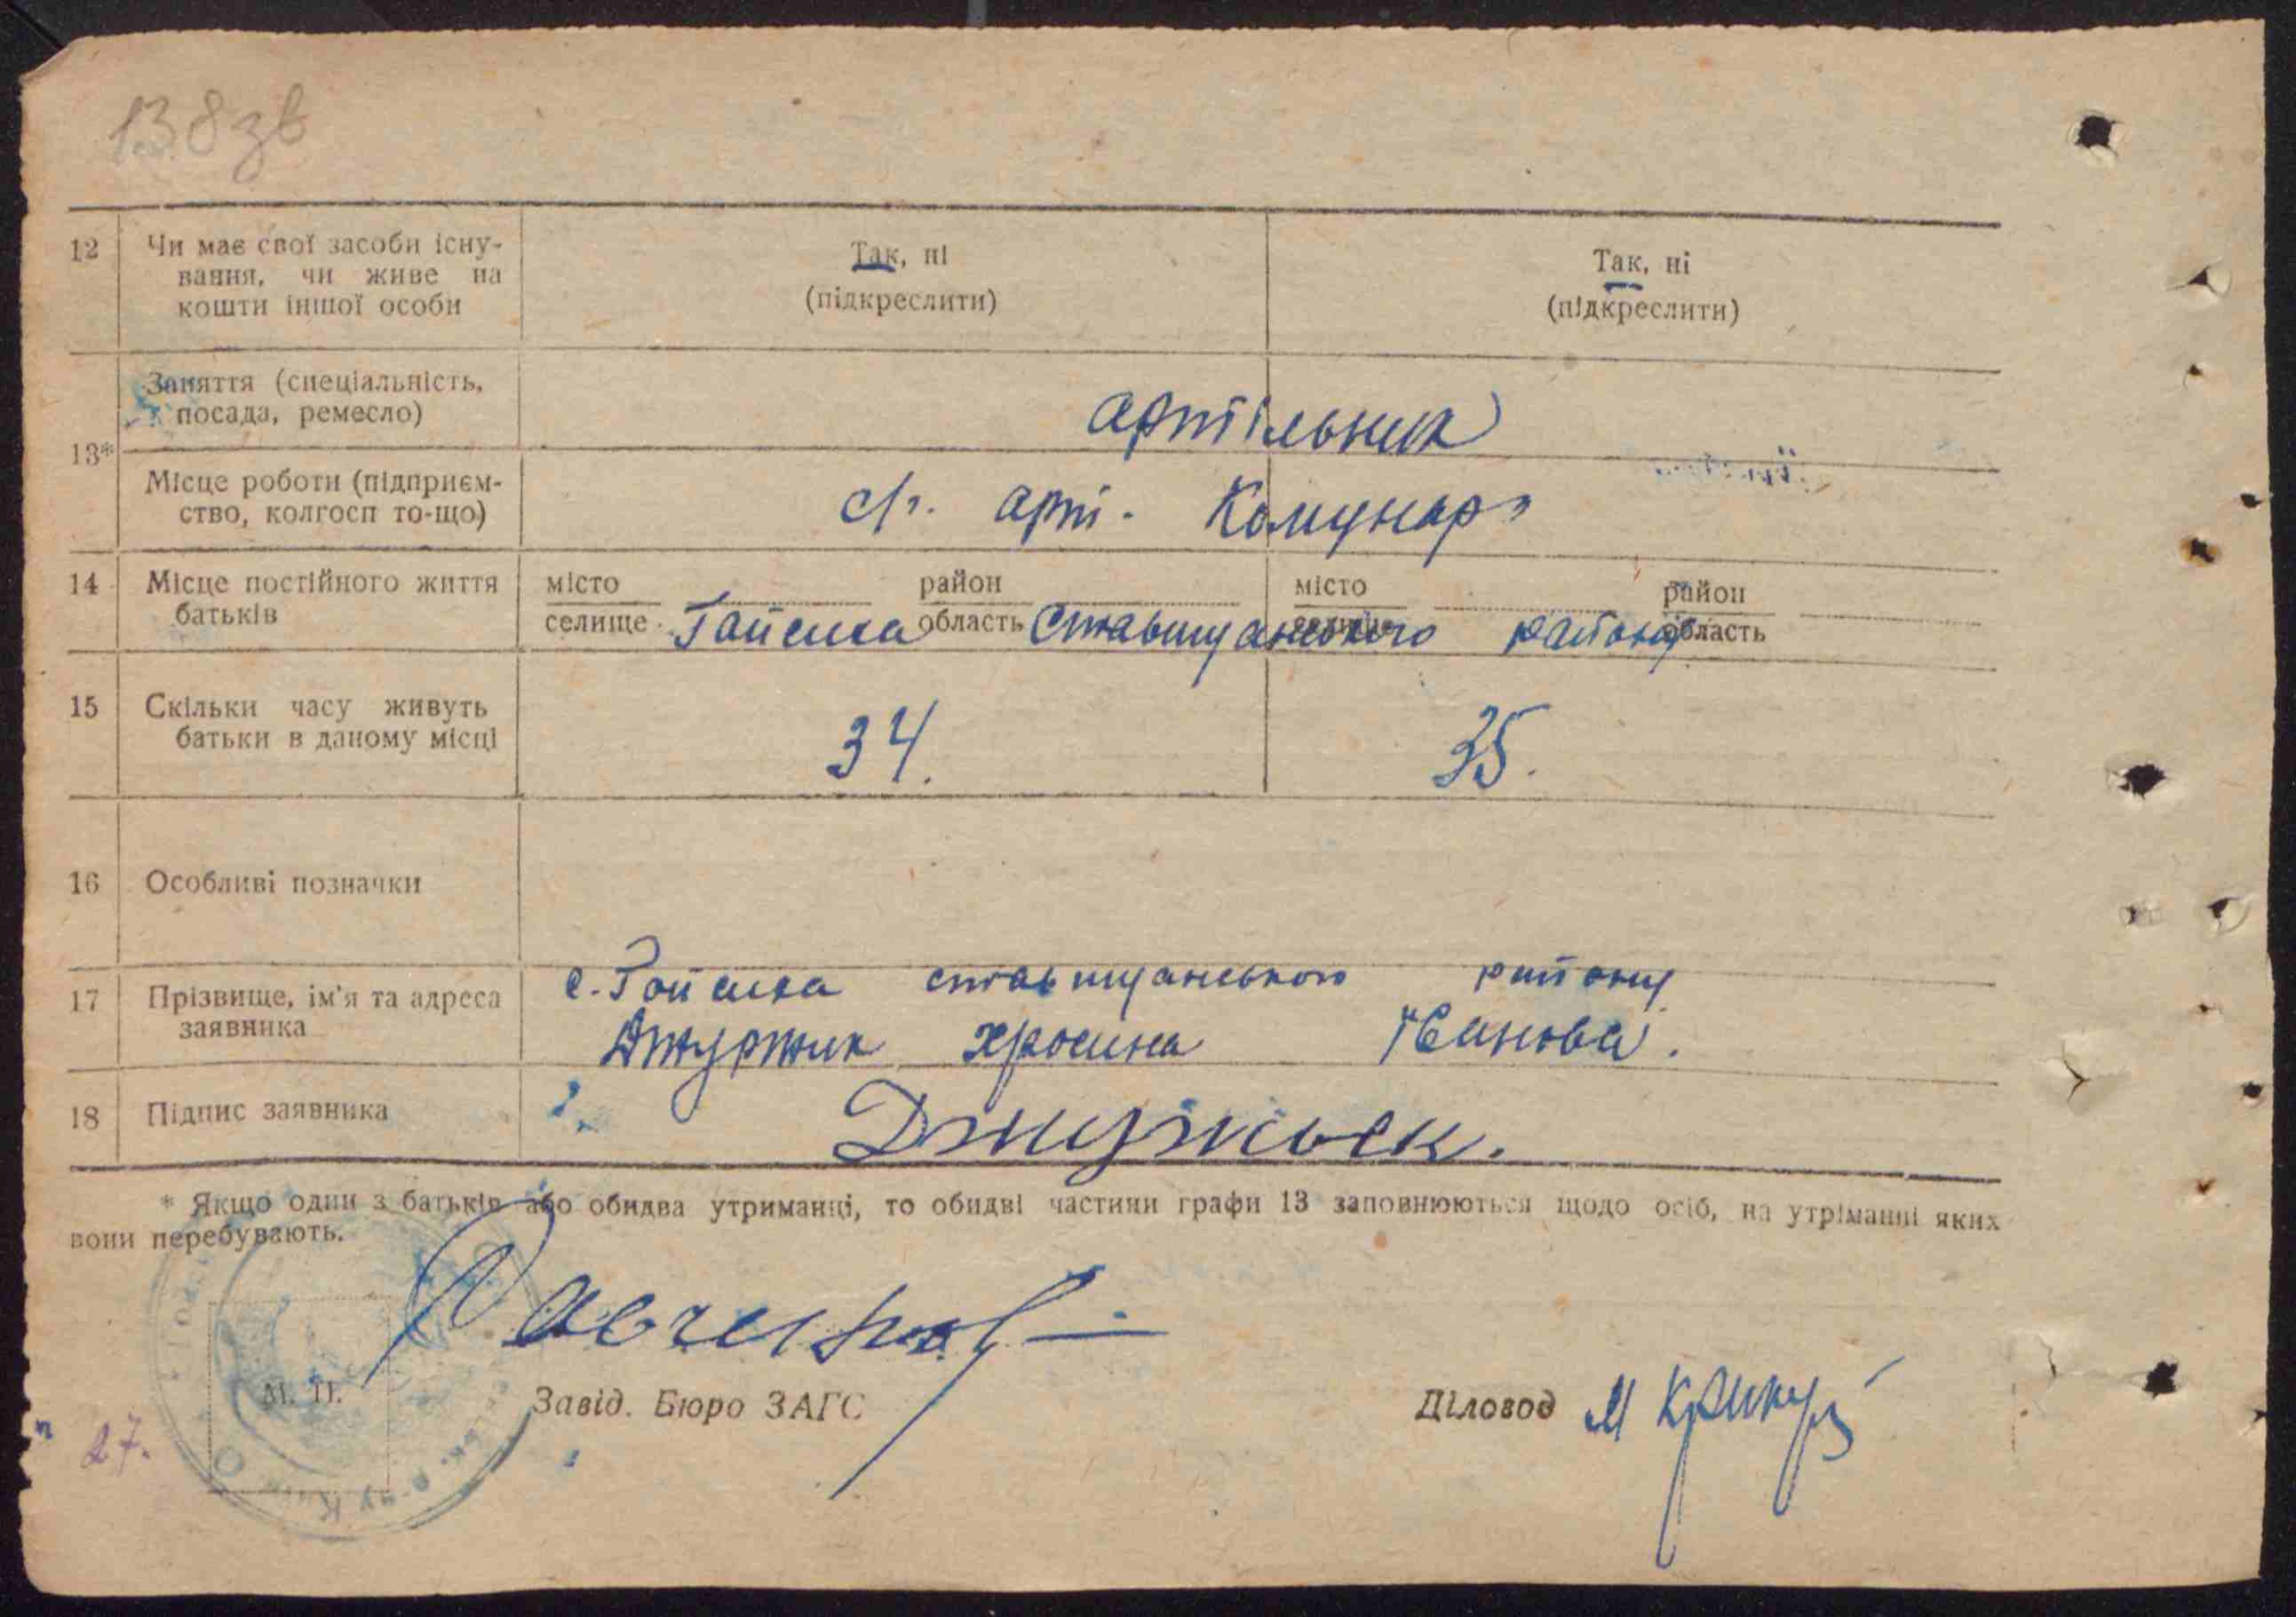 138зв
12 Чи має свої засоби існу-
вання, чи живе на
кошти іншої особи
Так, ні
(підкреслити)
Так, ні
(підкреслити)
13*
Заняття (спеціальність,
посада, ремесло)
артільник
Місце роботи (підприєм-
ство, колгосп то-що)
с/г. арт. Комунар
14 Місце постійного життя
батьків
місто район місто район
селище Гайсиха область Ставищанського району область
15 Скільки часу живуть
батьки в даному місці
34. 35.
16 Особливі позначки
17 Прізвище, ім'я та адреса
заявника
с. Гайсиха ставищанського району
Джуржик
18 Підпис заявника
* Якщо один з батьків або обидва утриманці, то обидві частини графи 13 заповнюються щодо осіб, на утріманні яких
вони перебувають.
М. П.
Завід. Бюро ЗАГС
Діловод М
27.